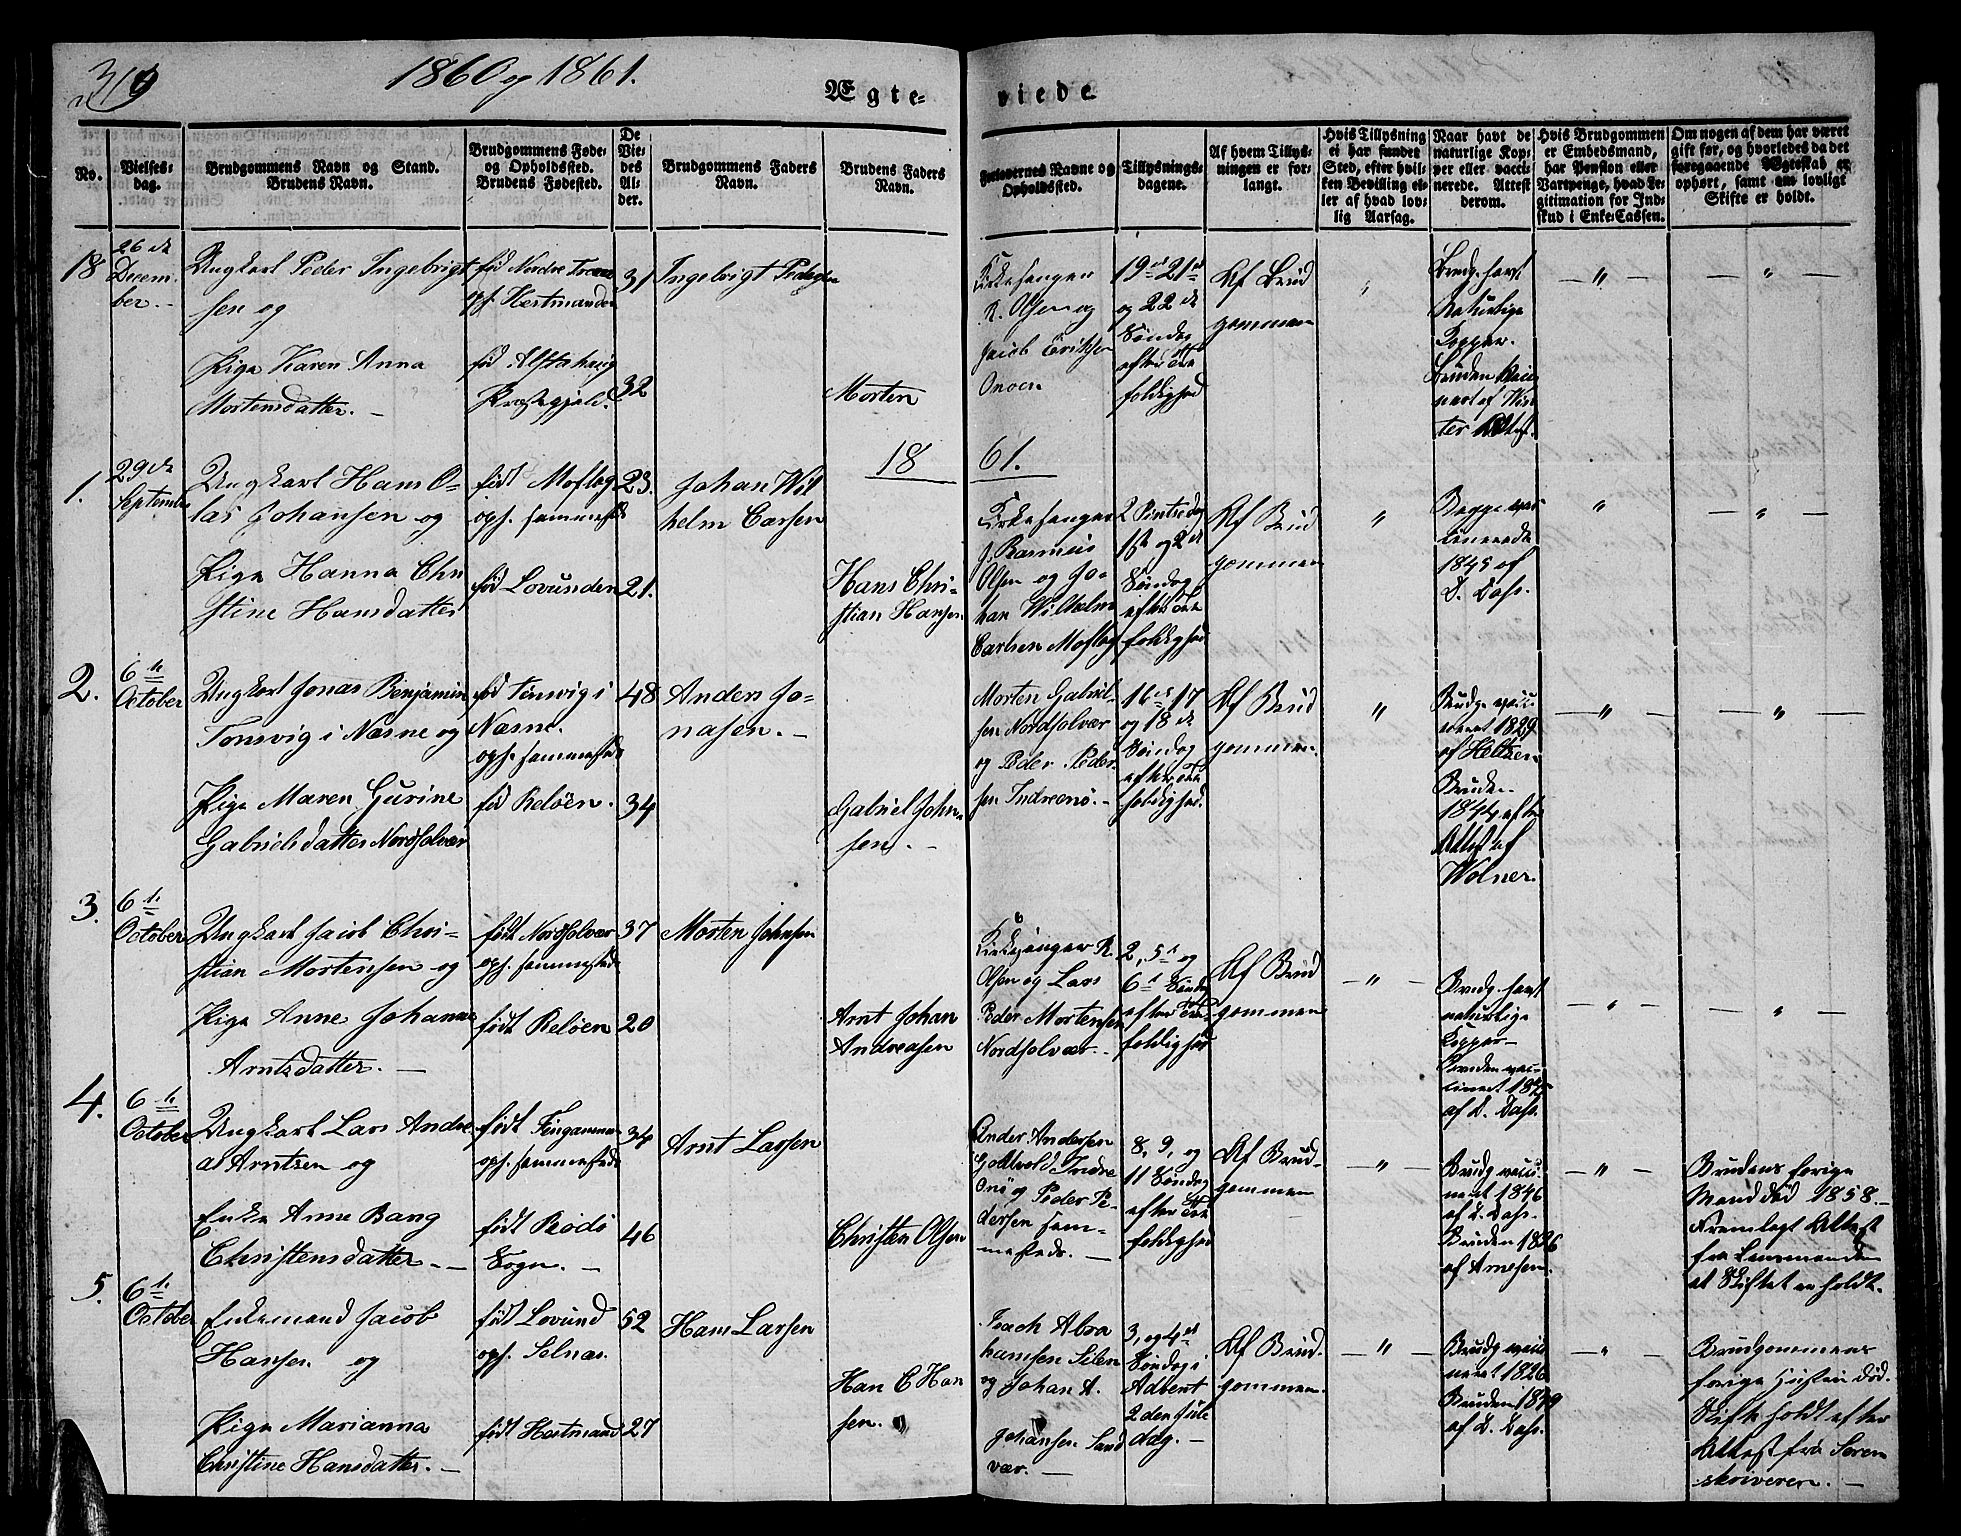 319
1860 og 1861.
Ægteviede
No.
Vielsesdag.
Brudgommens Navn og Stand.
Brudens Navn.
Brudgommens Føde-
og Opholdssted.
Brudens Fødested.
De
Vie-
des
Al-
der.
Brudgommens Faders
Navn.
Brudens Faders
Navn.
Forlovernes Navne og
Opholdssted.
Tillysnings-
dagene.
Af hvem Tillys-
ningen er for-
langt.
Hvis Tillysning
ei har fundet
Sted, efter hvil-
ken Bevilling el-
ler af hvad lov-
lig Aarsag.
Naar havt de
naturlige Kop-
per eller vacci-
nerede. Attest
derom.
Hvis Brudgommen
er Embedsmand,
har Pension eller
Vartpenge, hvad Le-
gitimation for Ind-
skud i Enke-Cassen.
Om nogen af dem har været
gift før, og hvorledes da det
foregaaende Ægteskab er
ophørt, samt om lovligt
Skifte er holdt.
18
26de
Decem-
ber.
Ungkarl Peder Ingebrigt
sen og
Pige Karen Anna
Mortensdatter.
fød Nordre
oph. Hestmanden
fød Alstahaug
Præstegjeld.
31
32
Ingebrigt Pedersen
Morten
Kirkesanger
R. Olsen og
Jacob Eriksen
Onoen
19de 21de
og 22de
Søndag
efter Tre
foldighed
Af Brud
gommen
"
Brudg. havt
Naturlige
Kopper.
Bruden vacci
neret af Win
ter Attest.
— " —
— " —
1861.
1.
29de
September
Ungkarl Hans O-
las Johansen og
Pige Hanna Chri
stine Hansdatter
født Moflag
oph. sammesteds
fød Lovunden
23.
21.
Johan Wil
helm Carsen
Hans Chri-
stian Hansen
Kirkesanger
J. Rasmus
Olsen og Jo-
han Wilhelm
Carlsen Moflag
2 Pintsedag
1ste og 2de
Søndag
efter Tre
foldighed
Af Brud
gommen
"
Begge vac
cinerede
1845 af
D. Dass.
"
— " —
2.
6te
October
Ungkarl Jonas Benjamin
Tonsvig i Næsne og
Pige Maren Gurine
Gabrielsdatter Nordsolvær
fød Tonsvig i
Næsne.
oph. sammesteds
fød Reløen.
48
34
Anders Jo-
nasen.
Gabriel John
sen.
Morten Gabriel-
sen Nordsolvær
og Peder Peder
sen Indreonø.
16de 17
og 18de
Søndag
efter Tre
foldighed.
Af Brud
gommen.
"
Brudg. vacci
neret 1829
af Heltzen
Bruden
1844 efter
Attest af
Wolner.
— " —
— " —
3.
6te
October
Ungkarl Jacob Chri-
stian Mortensen og
Pige Anne Johanna
Arntsdatter.
født Nordsolvær
oph. sammesteds
født Reløen
37
20
Morten Johnsen
Arnt Johan
Andreasen
Kirkesanger R.
Olsen og Lars
Peder Mortensen
Nordsolvær.
2, 5te og
6te Søndag
efter Tre
foldighed
Af Brud
gommen
— " —
Brudg. havt
naturlige
Kopper
Bruden vac-
cineret
af D. Dass.
— " —
— " —
4.
6te
October
Ungkarl Lars Andre
as Arntsen og
Enke Anne Bang
Christensdatter.
født
oph. sammesteds
født Rødø
Sogn.
34
46
Arnt Larsen
Christen Olsen
Ander Andersen
Gottvold Indre
Onø og Peder Pe-
dersen sam-
mesteds.
8, 9, og
11 Søndag
efter Tre
foldighed
Af Brud-
gommen
— " —
Brudg vacci-
neret 1846
af D. Dass.
Bruden 1826
af Arnesen.
— " —
Brudens forige
Mand død 1858 —
Fremlagt Attest
fra Lensmanden
at Skiftet er holdt.
5.
6te
October
Enkemand Jacob
Hansen og
Pige Marianna
Christine Hansdatter.
født Lovund
oph. Selnæs.
født Hestmand
52
27
Hans Larsen
Han C Han
sen.
Isach Abra
hamsen Silen
og Johan A.
Johansen Sand
vær.
3, og 4de
Søndag i
Advent
2den Jule
dag.
Af Brud.
gommen.
— " —
Brudg vacci
neret 1826
Bruden
af D. Dass.
— " —
Brudgommens
forige Hustru død.
Skifte holdt efter
Attest fra Soren
skriveren.